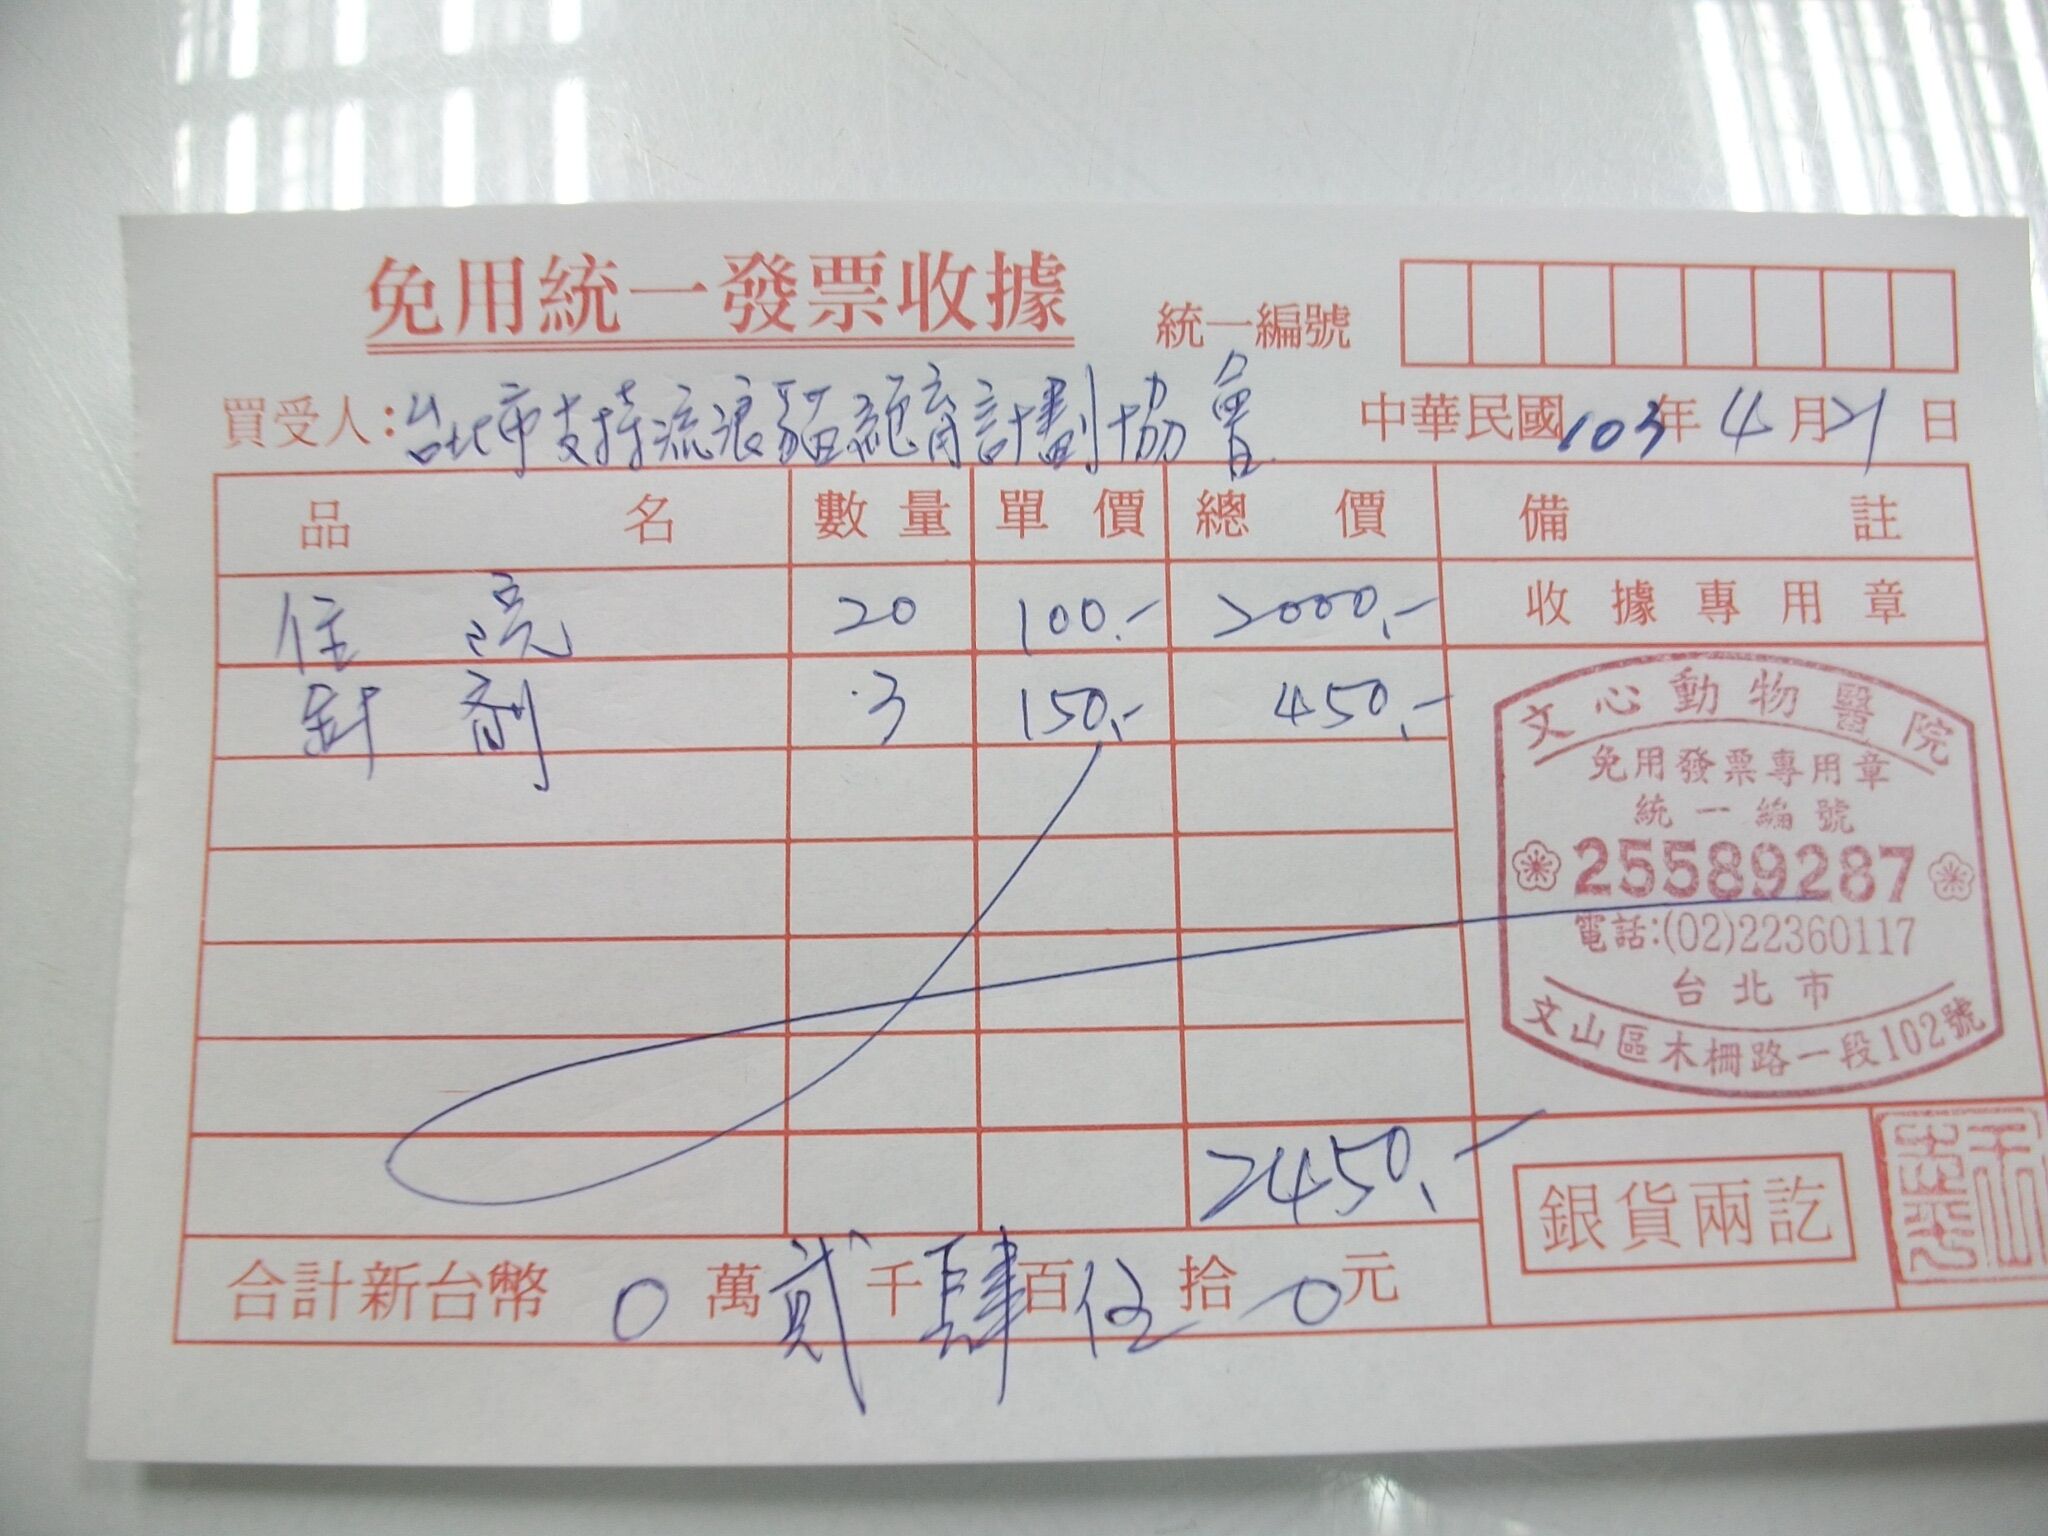 免用統一發票收據
統一編號
買受人:台北市支持流浪貓絕育計劃協會
中華民國103年4月21日
品名 數量 單價 總價 備註
住院 20 100.- 2000.- 收據專用章
針劑 3 150.- 450.-
文心動物醫院
免用發票專用章
統一編號
25589287
電話:(02)22360117
台北市
文山區木柵路一段102號
2450.-
銀貨兩訖
合計新台幣 0萬貳千肆百伍拾0元